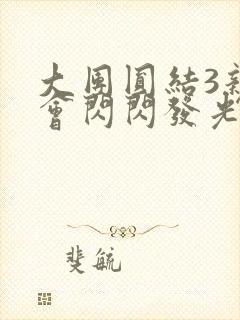 大團圓結3新
會閃閃發光
斐毓